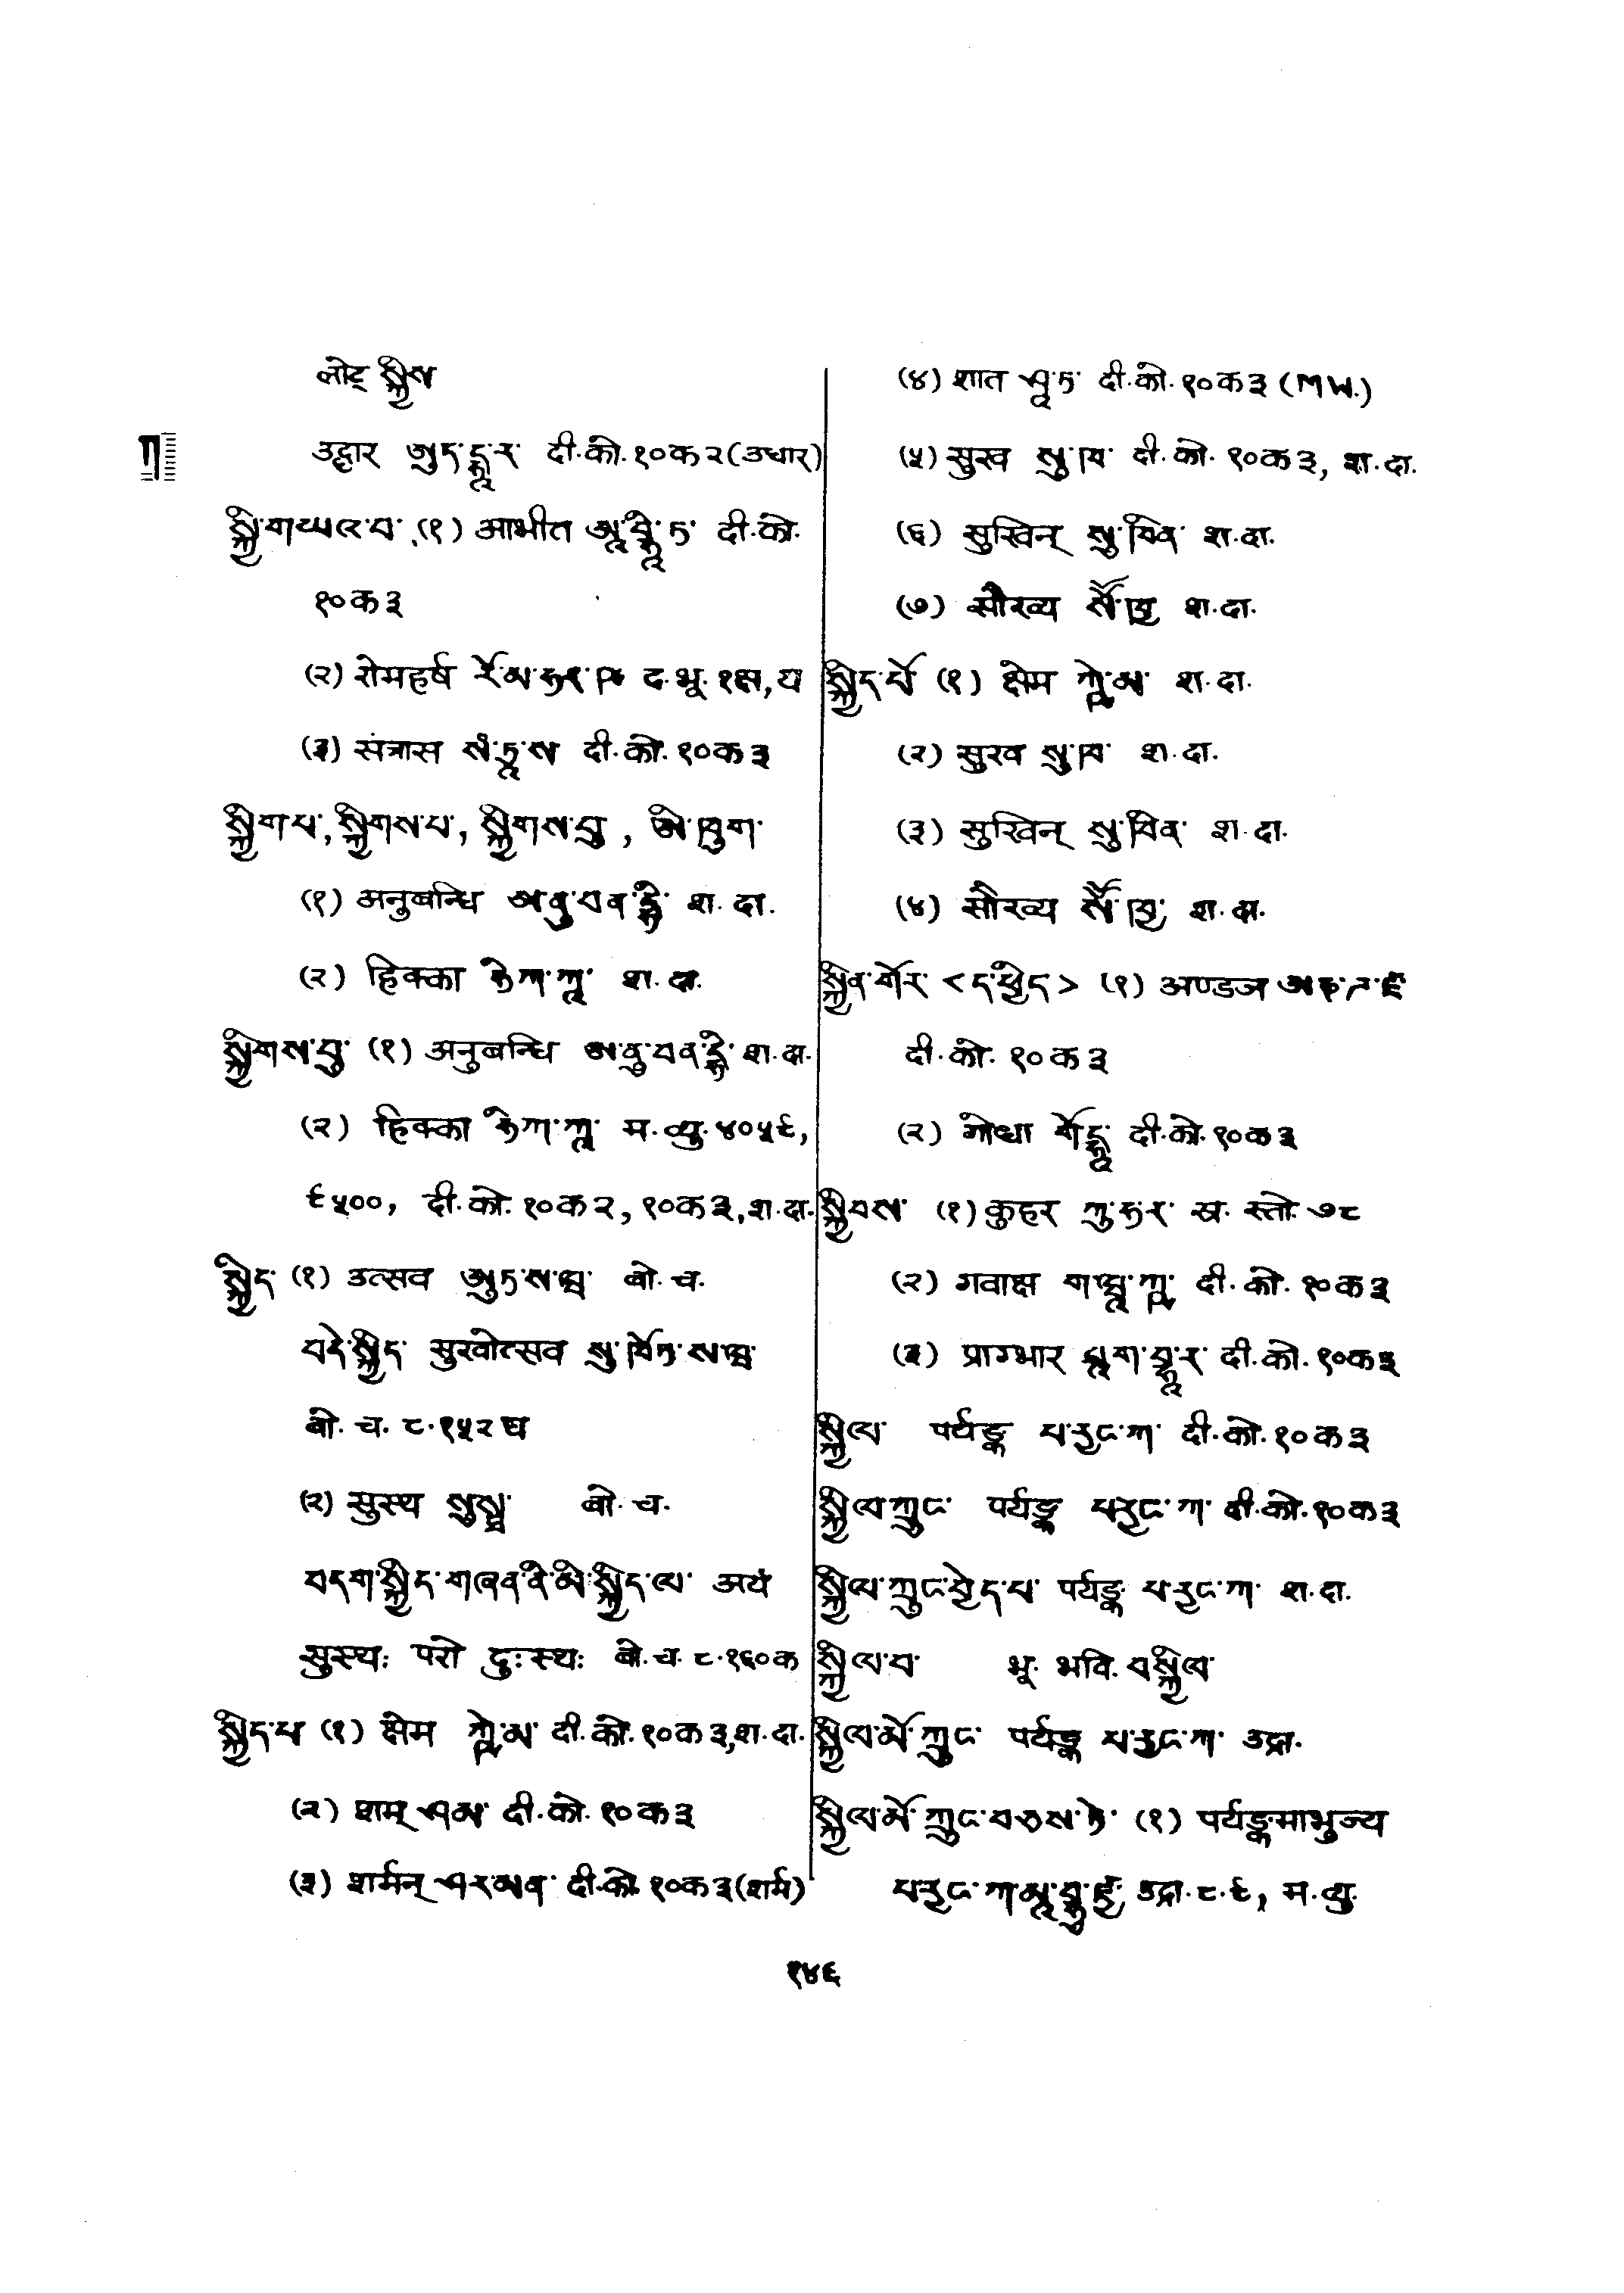 लोट् སྐྱིས
उद्धार ཨུད་དྷཱ་ར་ दी.को.१०क२(उधार)
སྐྱི་གཡའ་བ་ (१) आभीत ཨཱ་བྷཱི་ཏ་ दी.को.
१०क३
(२) रोमहर्ष རོ་མ་ཧརྵ द.भू.
(३) संत्रास སཾ་ཏྲཱ་ས दी.को.१०क३
སྐྱིག་པ་, སྐྱིགས་པ་, སྐྱིགས་བུ་, ཨི་ཁུག་
(१) अनुबन्धि ཨ་ནུ་བན་དྷི་ श.दा.
(२) हिक्का ཧིཀ་ཀཱ་ श.दा.
སྐྱིགས་བུ་ (१) अनुबन्धि ཨ་ནུ་བན་དྷི་ श.दा.
(२) हिक्का ཧིཀ་ཀཱ་ म.व्यु.४०५९,
९५००, दी.को.१०क२,१०क३,श.दा.
སྐྱིད་ (१) उत्सव ཨུཏ་ས་ཝ་ बो.च.
བདེ་སྐྱིད་ सुखोत्सव སུ་ཁོཏ་ས་ཝ་
बो.च.८.१५२घ
(२) सुस्थ སུ་སྠ་ बो.च.
བདག་སྐྱིད་གཞན་ནི་མི་སྐྱིད་ལ་ अयं
सुस्थः परो दुःस्थः बो.च.८.१६०क
སྐྱིད་པ (१) क्षेम ཀྵེ་མ་ दी.को.१०क३,श.दा.
(२) शम् ཤམ་ दी.को.१०क३
(३) शर्मन् ཤར་མན་ दी.को.१०क३(शर्म)
(४) शात ཤཱ་ཏ་ दी.को.१०क३(MW.)
(५) सुख སུ་ཁ་ दी.को.१०क३, श.दा.
(६) सुखिन् སུ་ཁིན་ श.दा.
(७) सौख्य སཽ་ཁྱ श.दा.
སྐྱིད་པོ་ (१) क्षेम ཀྵེ་མ་ श.दा.
(२) सुख སུ་ཁ་ श.दा.
(३) सुखिन् སུ་ཁིན་ श.दा.
(४) सौख्य སཽ་ཁྱ་ श.दा.
སྐྱིན་གོར་ <ད་ཕྱིད> (१) अण्डज ཨཎ་ཌ་ཛ་
दी.को.१०क३
(२) गोधा གོ་དྷཱ दी.को.१०क३
སྐྱིབས་ (१) कुहर ཀུ་ཧ་ར་ स्तो.७८
(२) गवाक्ष ག་ཝཱ་ཀྵ་ दी.को.१०क३
(३) प्राग्भार པྲཱག་བྷཱ་ར་ दी.को.१०क३
སྐྱིལ་ पर्यङ्क པ་རྱང་ཀ་ दी.को.१०क३
སྐྱིལ་ཀྲུང་ पर्यङ्क པ་རྱང་ཀ་ दी.को.१०क३
སྐྱིལ་ཀྲུང་བྱེད་པ་ पर्यङ्क པ་རྱང་ཀ་ श.दा.
སྐྱིལ་བ་ भू. भवि. བསྐྱིལ་
སྐྱིལ་མོ་ཀྲུང་ पर्यङ्क པ་རྱང་ཀ་ उद्रा.
སྐྱིལ་མོ་ཀྲུང་བཅས་ཏེ་ (१) पर्यङ्कमाभुज्य
པ་རྱང་ཀ་མཱ་བྷུ་ཛྱ་ उद्रा.८.९, म.व्यु.
१४६